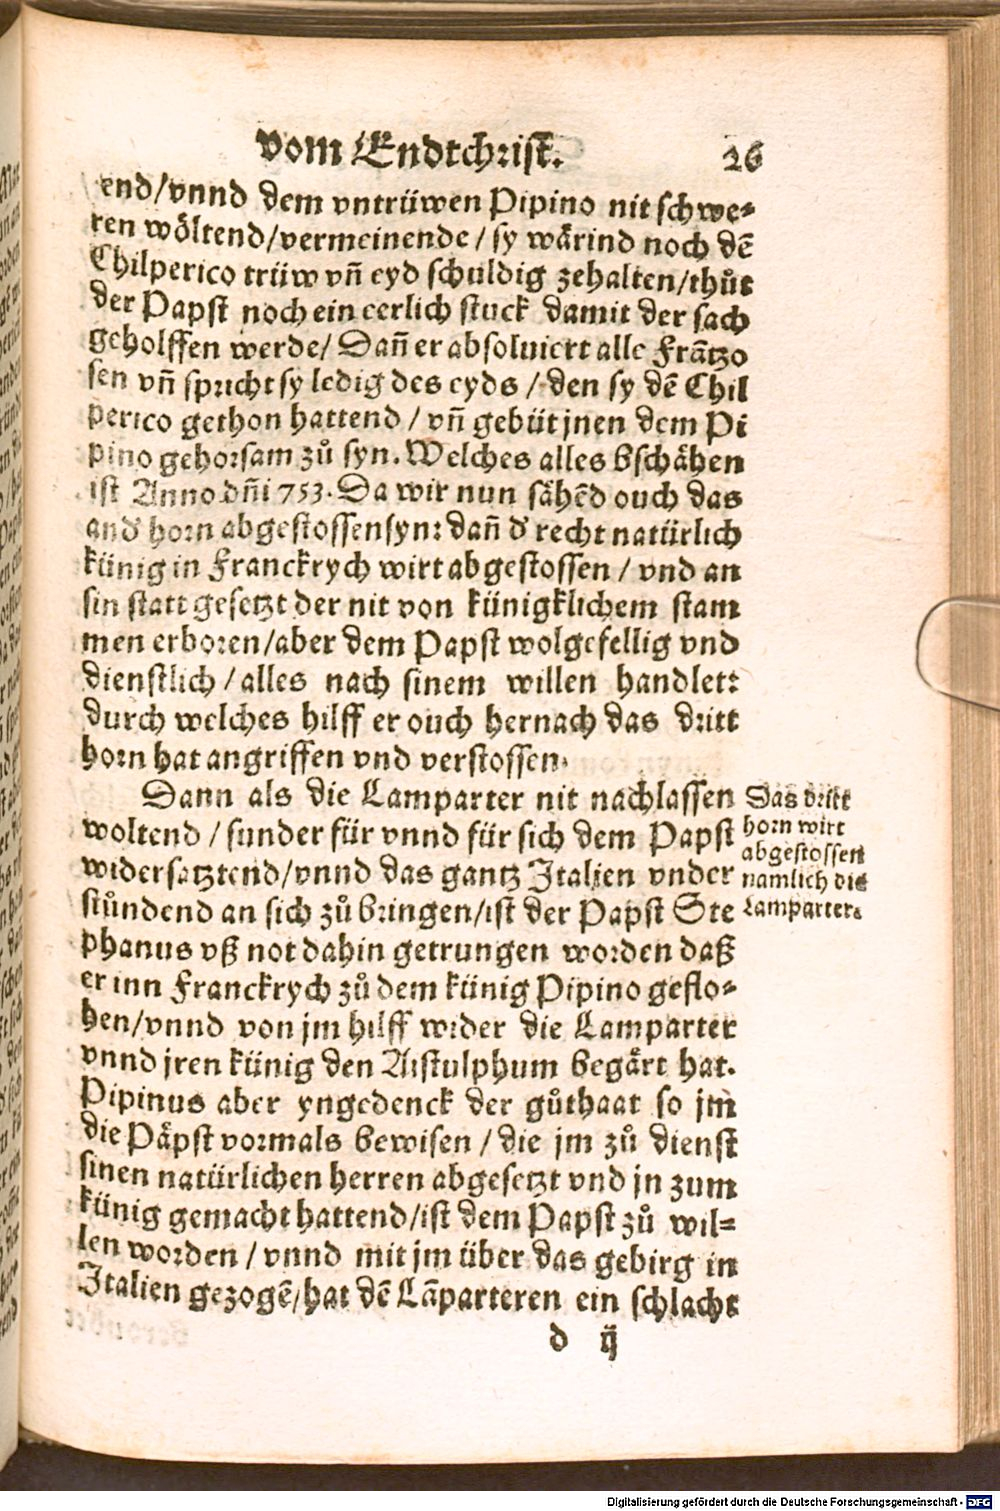 vom Endtchrist. 26
end/vnnd dem vntrüwen Pipino nit schwe⸗
ren wöltend/vermeinende/sy wärind noch dē
Chilperico trüw vñ eyd schuldig zehalten/thůt
der Papst noch ein eerlich stuck damit der sach
geholffen werde/ Dañ er absoluiert alle Frātzo
sen vñ spricht sy ledig des eyds / den sy dē Chil
perico gethon hattend / vñ gebüt jnen dem Pi
pino gehorsam zů syn. Welches alles bschähen
ist Anno dñi 753. Da wir nun sähēd ouch das
and' horn abgestossen syn: dañ d' recht natürlich
künig in Franckrych wirt abgestossen / vnd an
sin statt gesetzt der nit von künigklichem stam
men erboren/aber dem Papst wolgefellig vnd
dienstlich / alles nach sinem willen handlet:
durch welches hilff er ouch hernach das dritt
horn hat angriffen vnd verstossen.
Dann als die Lamparter nit nachlassen
woltend / sunder für vnnd für sich dem Papst
widersatztend/vnnd das gantz Italien vnder
stůndend an sich zů bringen/ist der Papst Ste
phanus vß not dahin getrungen worden daß
er inn Franckrych zů dem künig Pipino geflo⸗
hen/vnnd von jm hilff wider die Lamparter
vnnd jren künig den Aistulphum begärt hat.
Pipinus aber yngedenck der gůthaat so jm
die Päpst vormals bewisen / die jm zů dienst
sinen natürlichen herren abgesetzt vnd jn zum
künig gemacht hattend/ist dem Papst zů wil⸗
len worden / vnnd mit jm über das gebirg in
Italien gezogē/hat dē Lāparteren ein schlacht
d ij
Das dritt
horn wirt
abgestossen
namlich die
Lamparter.
Digitalisierung gefördert durch die Deutsche Forschungsgemeinschaft - DFG